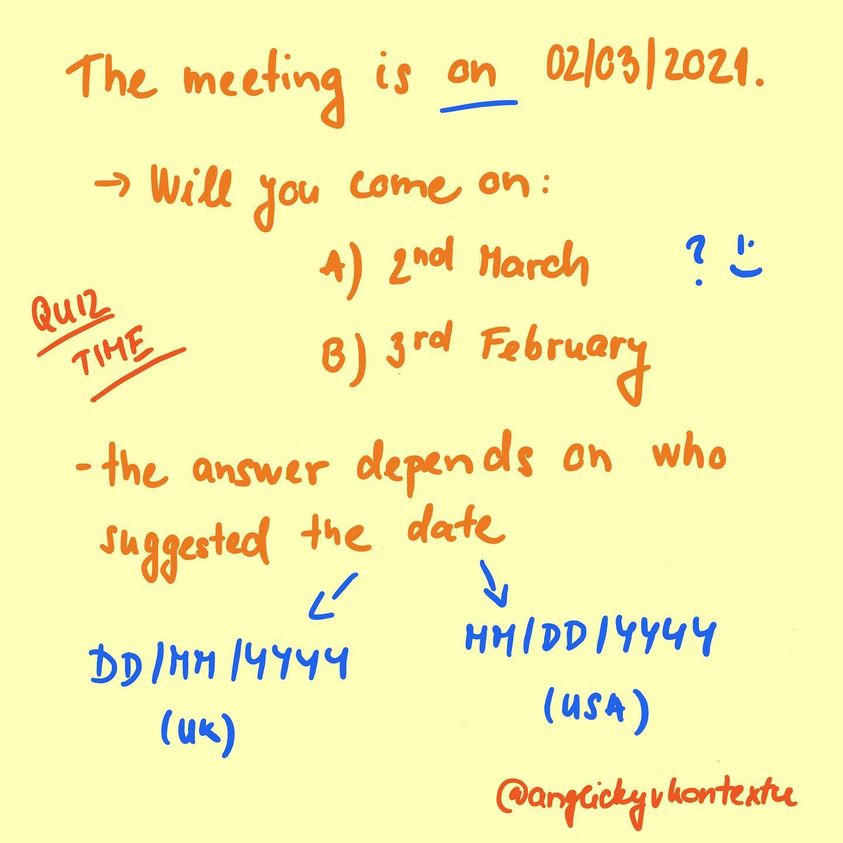 The meeting is on 02/03/2021.
→ Will you come on:
A) 2nd March ? !
B) 3rd February
QUIZ
TIME
- the answer depends on who
suggested the date
DD/MM/YYYY
(UK)
MM/DD/YYYY
(USA)
@anglickyvkontextu